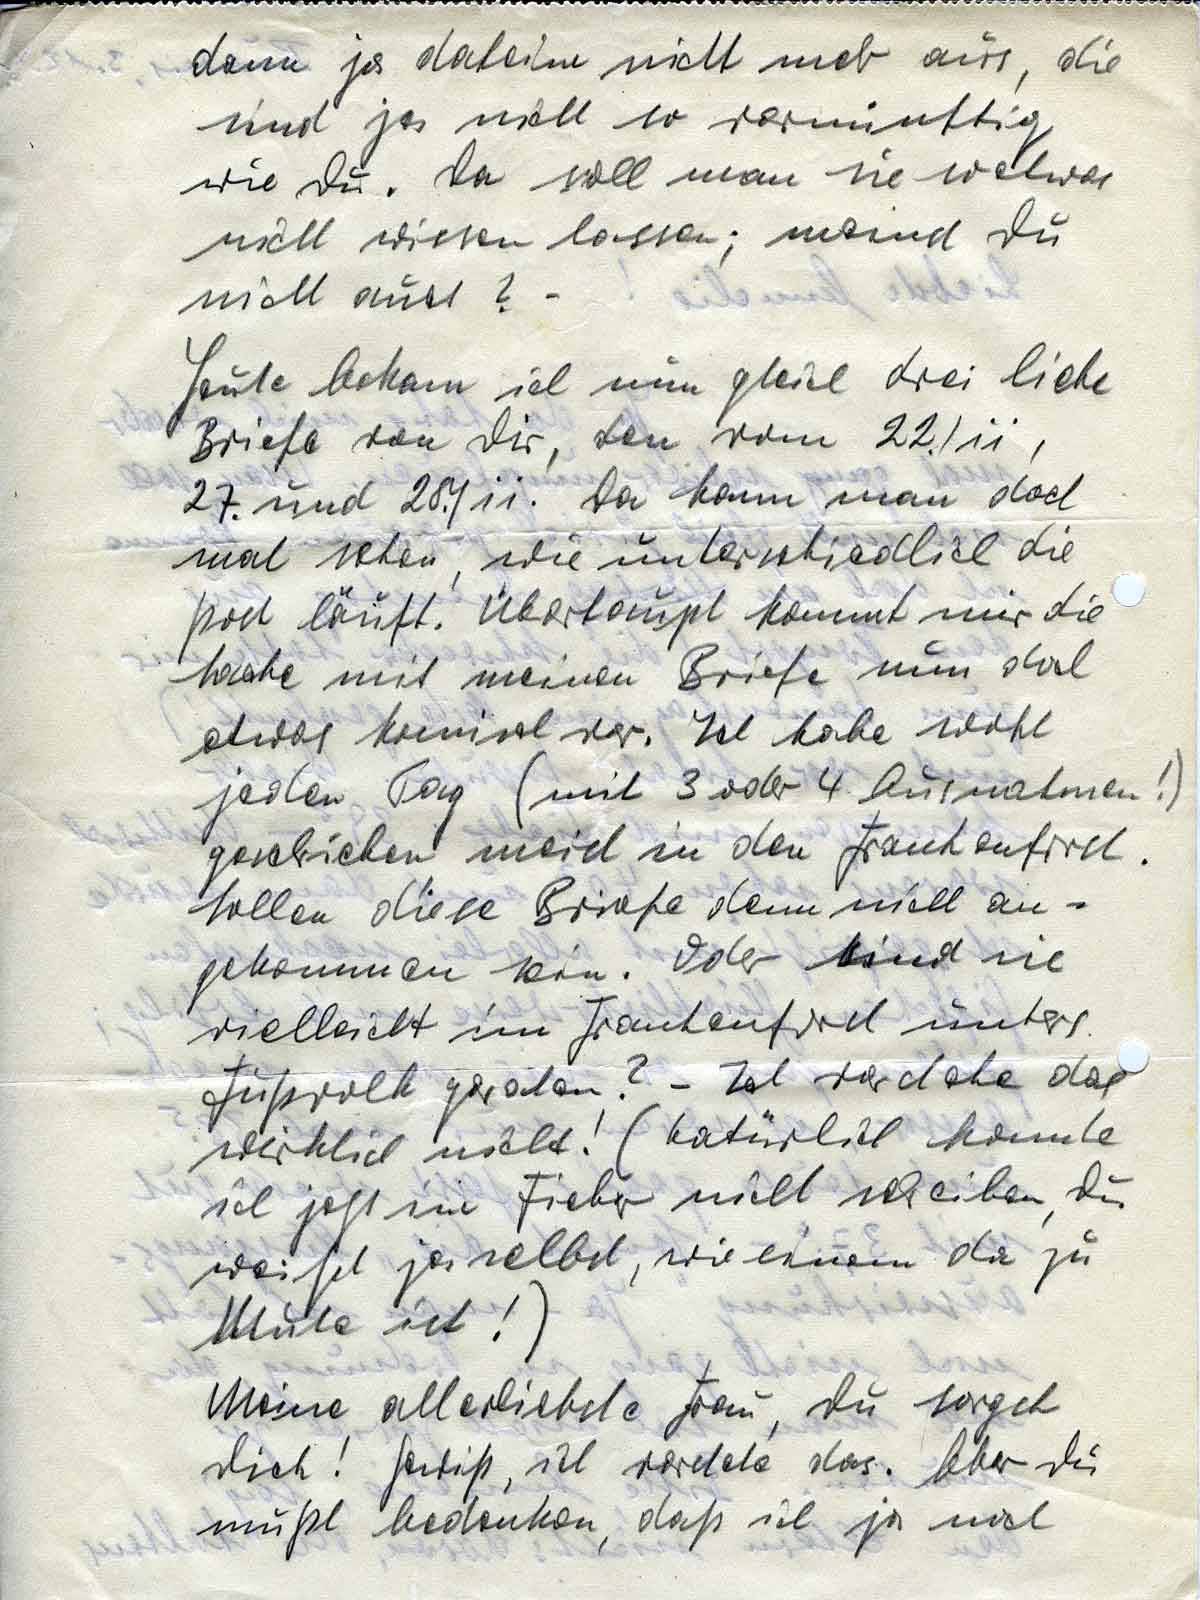 denn ja daheim nicht mehr aus, die
sind ja nicht so vernünftig
wie Du. Da soll man sie so etwas
nicht wissen lassen; meinst Du
nicht auch? -
Heute bekam ich nun gleich drei liebe
Briefe von Dir, den vom 22./11,
27. und 28./11. Da kann man doch
mal sehen, wie unterschiedlich die
Post läuft. Überhaupt kommt mir die
Sache mit meinen Briefe nun doch
etwas komisch vor. Ich habe wohl
jeden Tag (mit 3 oder 4 Ausnahmen!)
geschrieben meist in den Frankenforst.
Sollen diese Briefe denn nicht an-
gekommen sein. Oder sind sie
vielleicht im Frankenforst unters
Fußvolk geraten? - Ich verstehe das
wirklich nicht! (Natürlich konnte
ich jetzt im Fieber nicht schreiben, Du
weißt ja selbst, wie einem da zu
Mute ist!)
Meine allerliebste Frau, Du sorgst
Dich! Gewiß, ich verstehe das. Aber Du
mußt bedenken, daß ich ja noch